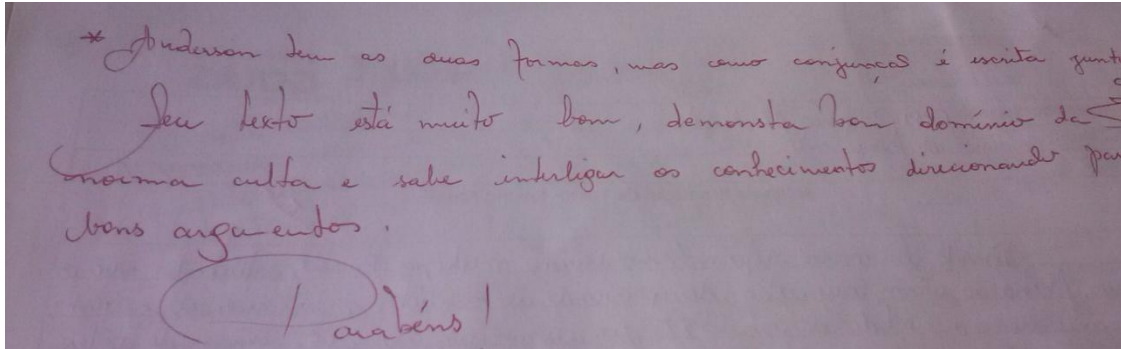 * Anderson tem as duas formas, mas como conjunção é escrita junto
Seu texto está muito bom, demonsta bom domínio da
norma culta e sabe interligar os conhecimentos direcionando para
bons argumentos.
Parabéns!